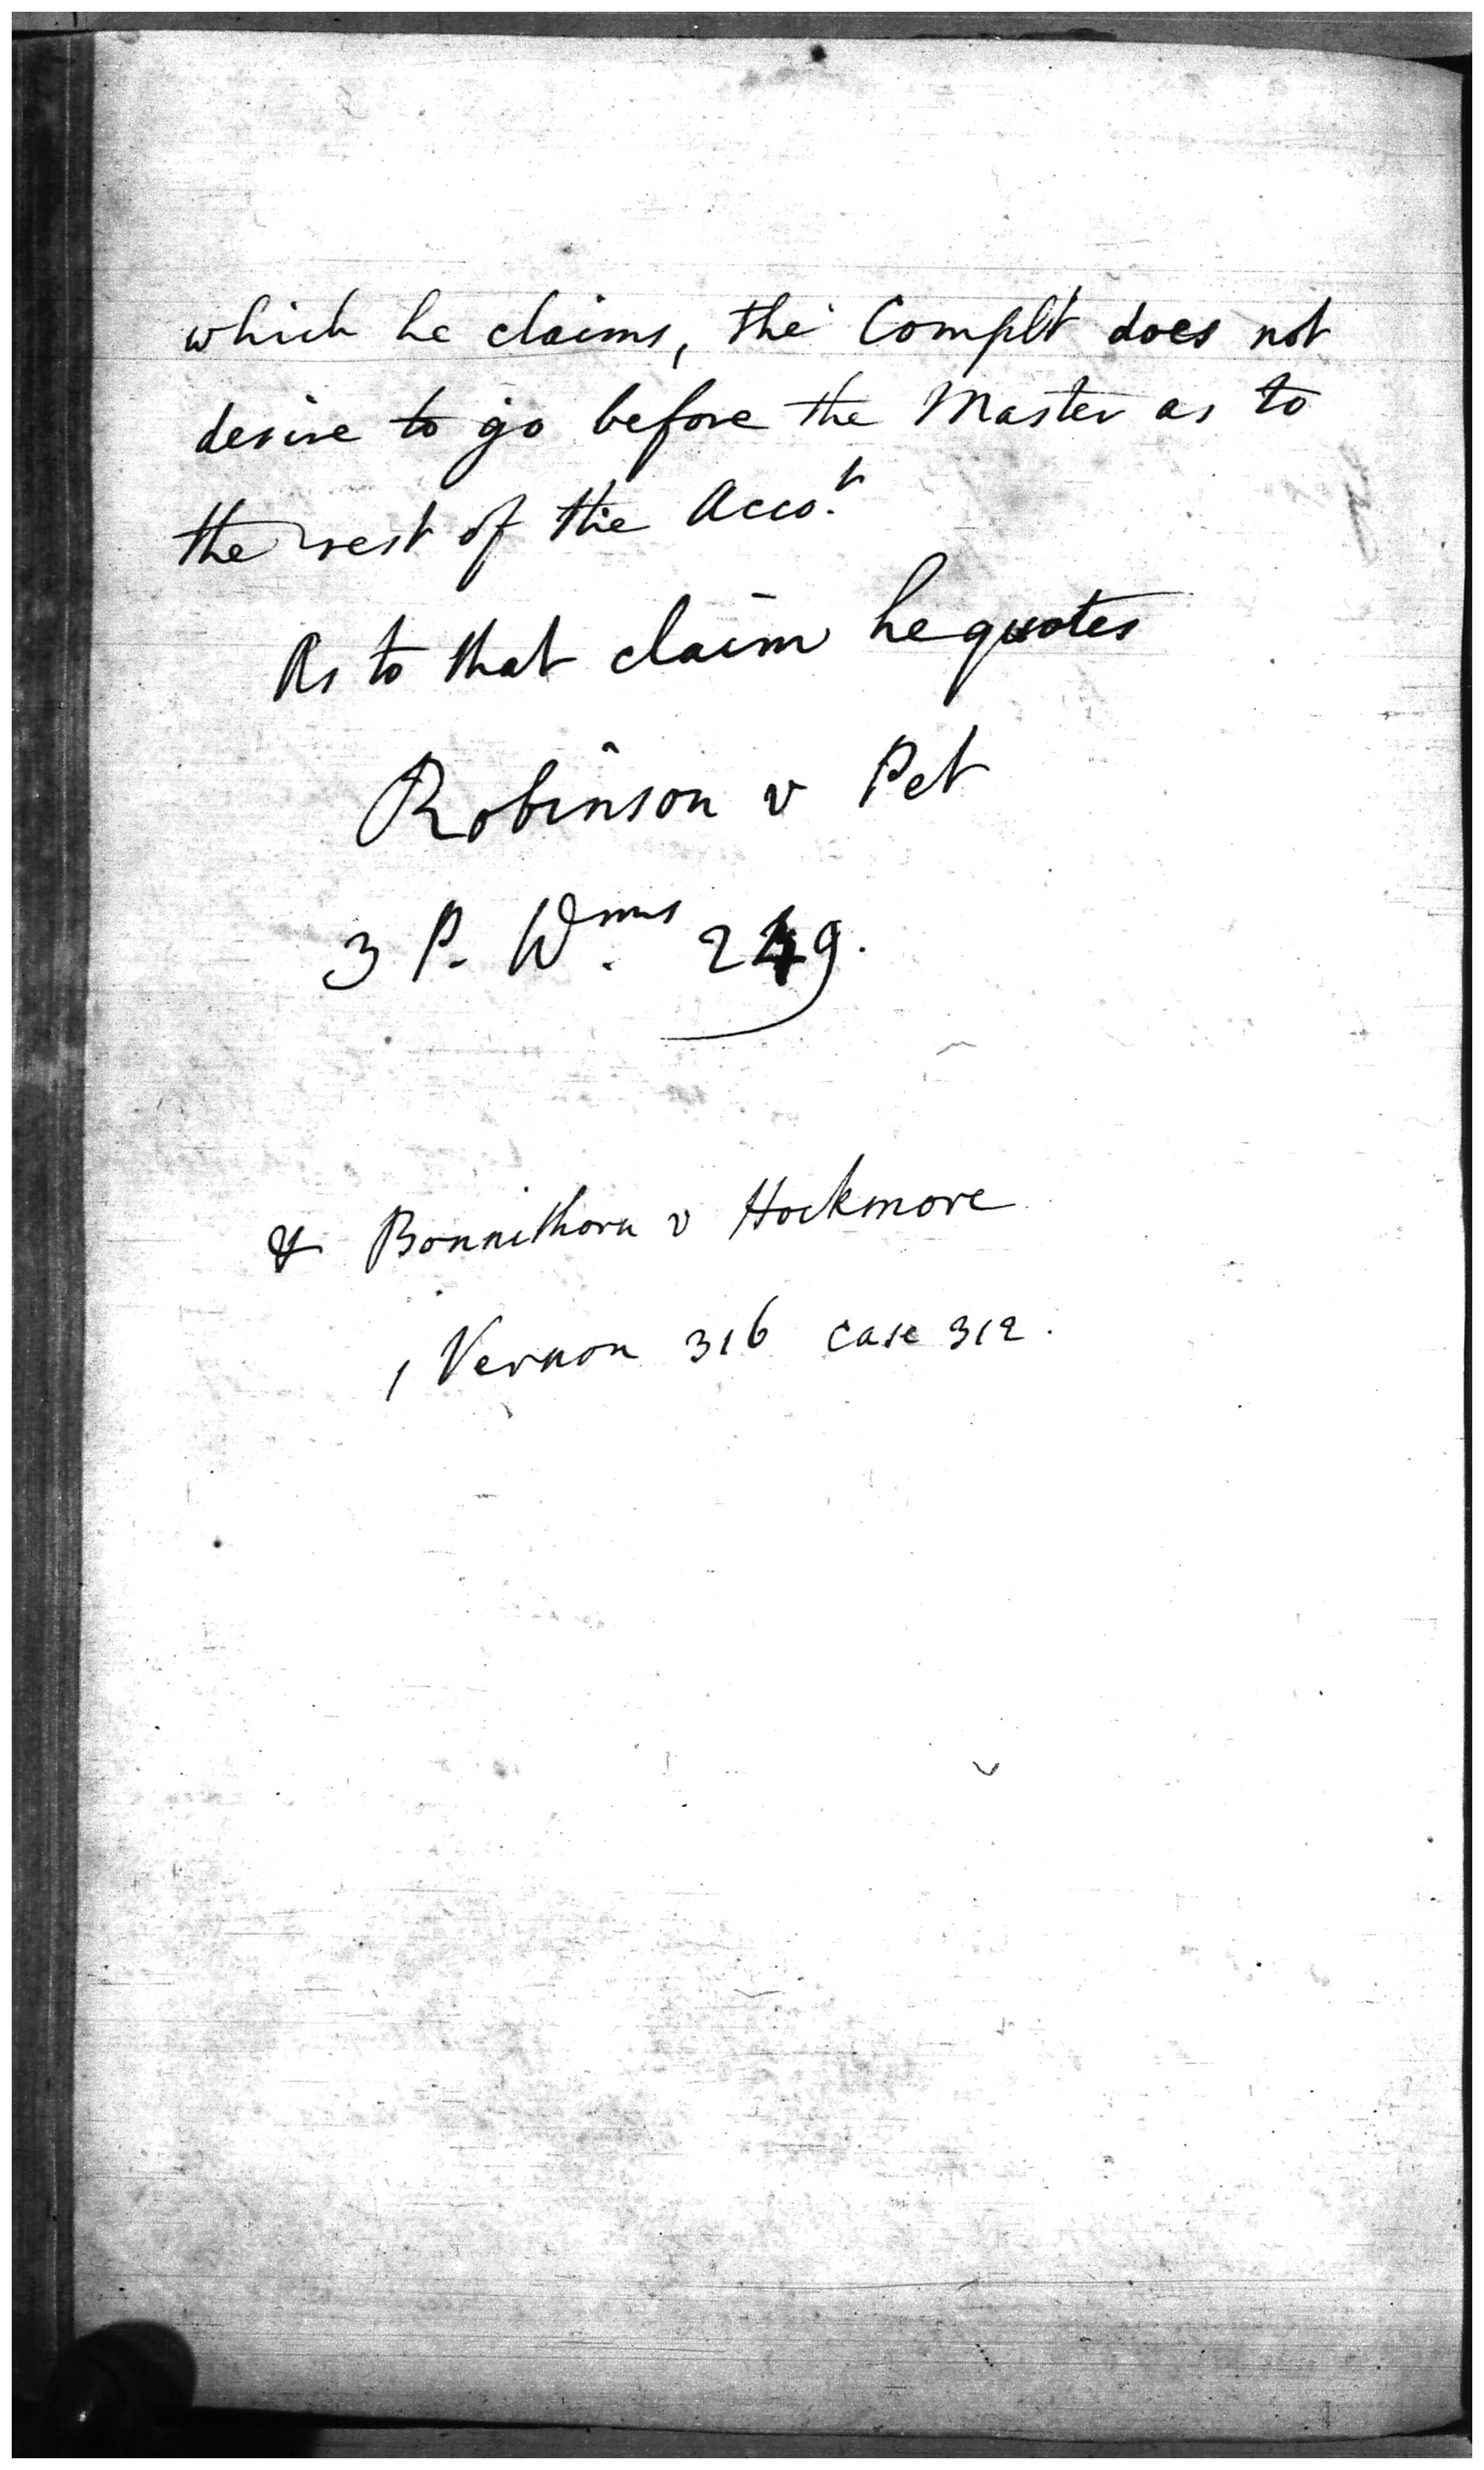 which he claims, the Complt does not
desire to go before the Master as to
the rest of the Acco.t
As to that claim he quotes
Robinson v Pet
3 P. W.ms 249.
& Bonnithorn v Hockmore
1 Vernon 316 case 312.